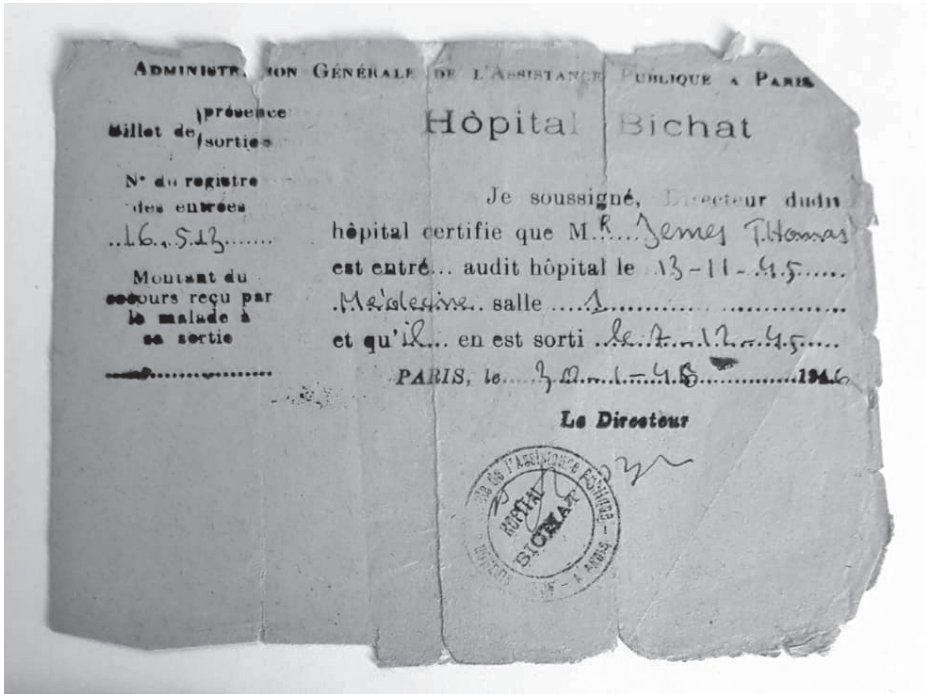 ADMINISTRATION GÉNÉRALE DE L'ASSISTANCE PUBLIQUE A PARIS
Billet de présence
sorties
Hôpital Bichat
N° du registre
des entrées
16.513
Montant du
secours reçu par
le malade à
sa sortie
Je soussigné, Directeur dudit
hôpital certifie que M.R Jemes T.Homas
est entré... audit hôpital le 13-11-45
Médecine salle 1
et qu'il... en est sorti le 7-12-45
PARIS, le 1946
Le Directeur
HOPITAL
BICHAT
de l'Assistance Publique - A PARIS